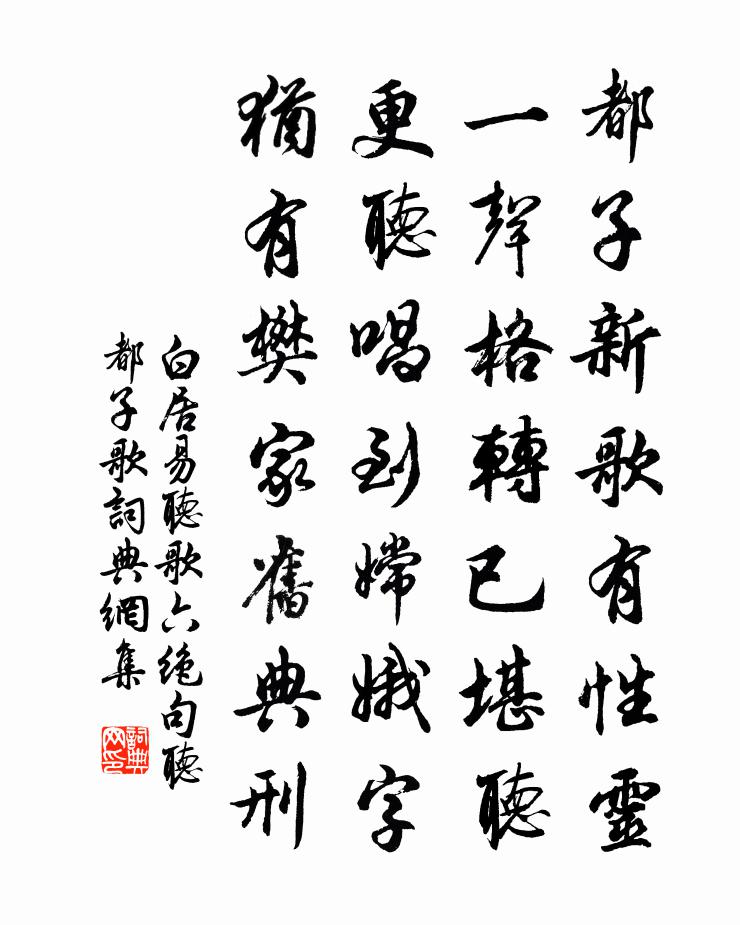 都子新歌有性靈
一聲格轉已堪聽
更聽唱到嫦娥字
猶有樊家舊典刑
白居易聽歌六絶句聽
都子歌詞典網集
詞典
网印